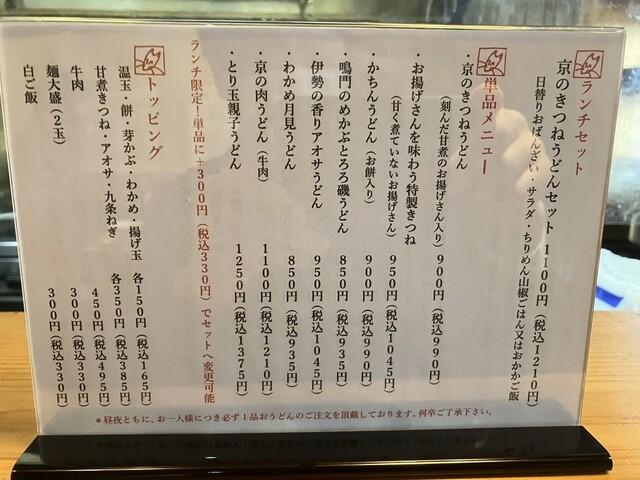 ランチセット
京のきつねうどんセット 1100円(税込1210円)
日替りおばんざい・サラダ・ちりめん山椒ごはん又はおかかご飯
単品メニュー
・京のきつねうどん
(刻んだ甘煮のお揚げさん入り) 900円(税込990円)
・お揚げさんを味わう特製きつね
(甘く煮ていないお揚げさん) 950円(税込1045円)
・かちんうどん(お餅入り) 900円(税込990円)
・鳴門のめかぶとろろ磯うどん 850円(税込935円)
・伊勢の香りアオサうどん 950円(税込1045円)
・わかめ月見うどん 850円(税込935円)
・京の肉うどん(牛肉) 1100円(税込1210円)
・とり玉親子うどん 1250円(税込1375円)
ランチ限定!単品に+300円(税込330円)でセットへ変更可能
トッピング
温玉・餅・芽かぶ・わかめ・揚げ玉 各150円(税込165円)
甘煮きつね・アオサ・九条ねぎ 各350円(税込385円)
牛肉 450円(税込495円)
麺大盛(2玉) 300円(税込330円)
白ご飯 300円(税込330円)
*昼夜ともに、お一人様につき必ず1品おうどんのご注文を頂戴しております。何卒ご了承下さい。